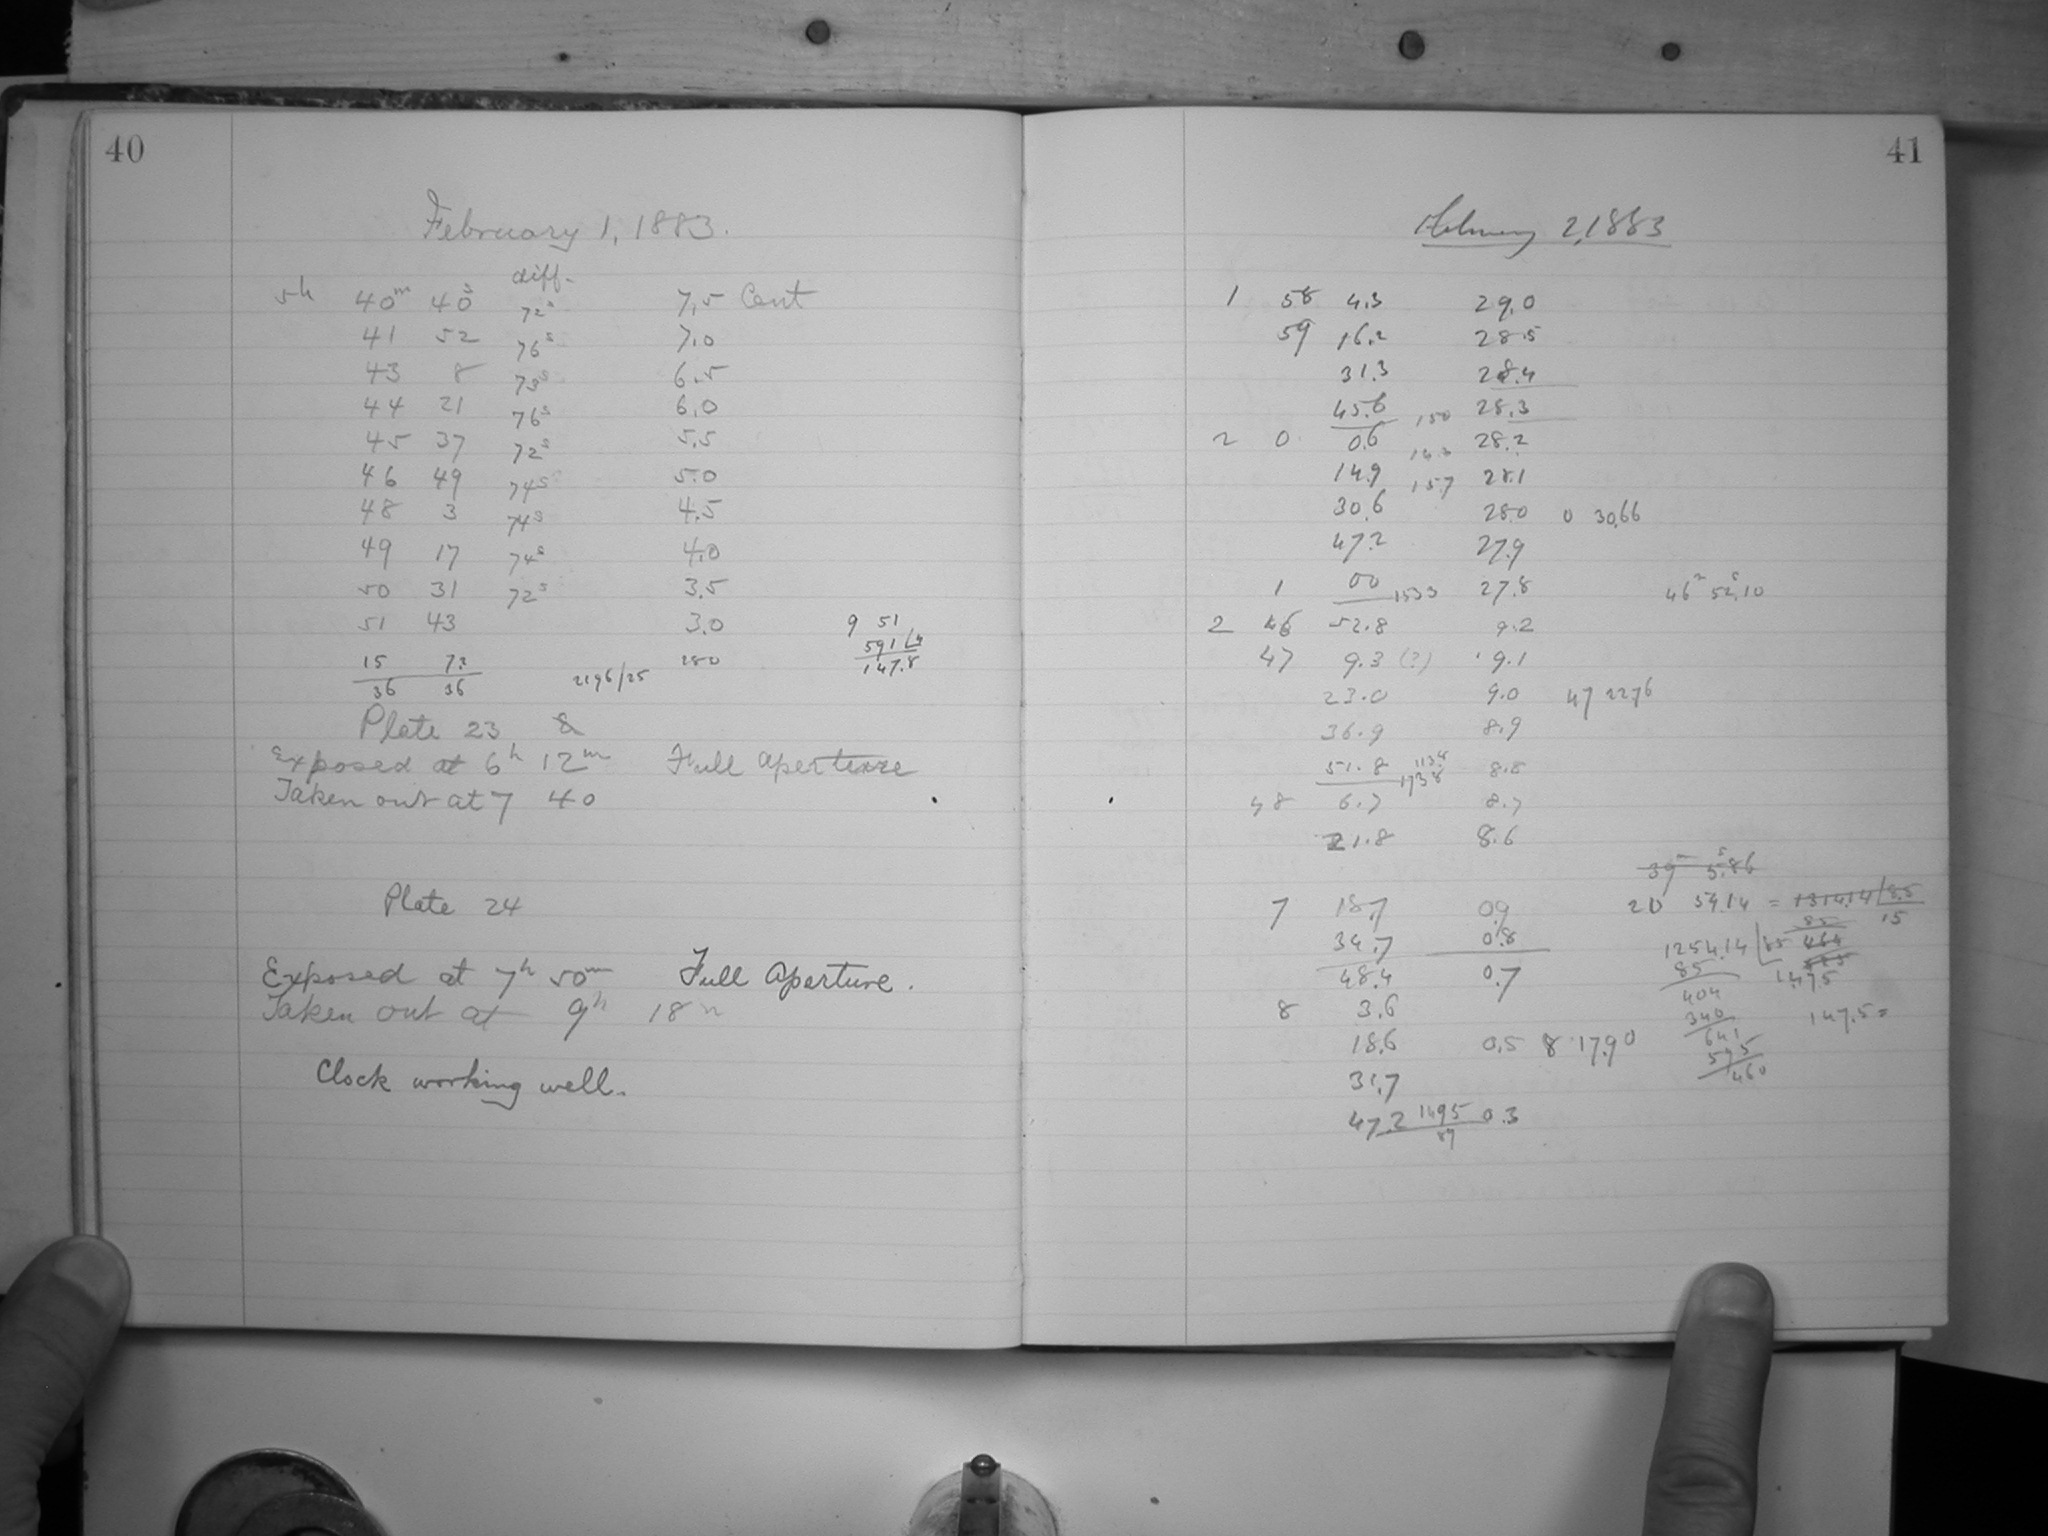 40
February 1, 1883.
diff.
5h 40m 40s 72s 7,5 Cent
41 52 76s 7.0
43 8 73s 6.5
44 21 76s 6.0
45 37 72s 5.5
46 49 74s 5.0
48 3 74s 4.5
49 17 74s 4.0
50 31 72s 3.5
51 43 3.0 9 51
591/4
15 72 280 147.8
36 36 2196/25
Plate 23 &
Exposed at 6h 12m Full aperture
Taken out at 7 40
Plate 24
Exposed at 7h 50m Full Aperture.
Taken out at 9h 18m
Clock working well.
41
February 2, 1883
1 58 4.3 29.0
59 16.2 28.5
31.3 28.4
45.6 150 28.3
2 0 0.6 28.2
14.9 157 28.1
30.6 28.0 0 30,66
47.2 27.9
1 00 1533 27.8 46m 52s.10
2 46 52.8 9.2
47 9.3 (?) 9.1
23.0 9.0 47 22.76
36.9 8.9
51.8 8.8
48 6.7 8.7
21.8 8.6
39m 5s.86
7 18.7 0.9 20 59.14 = 1314.14/8.5
34.7 0.8 1254.14
48.4 0.7 85 1475
8 3.6 404
340 147.5=
18.6 0.5 8 17.90 641
595
31.7 460
47.2 1495 0.3
87